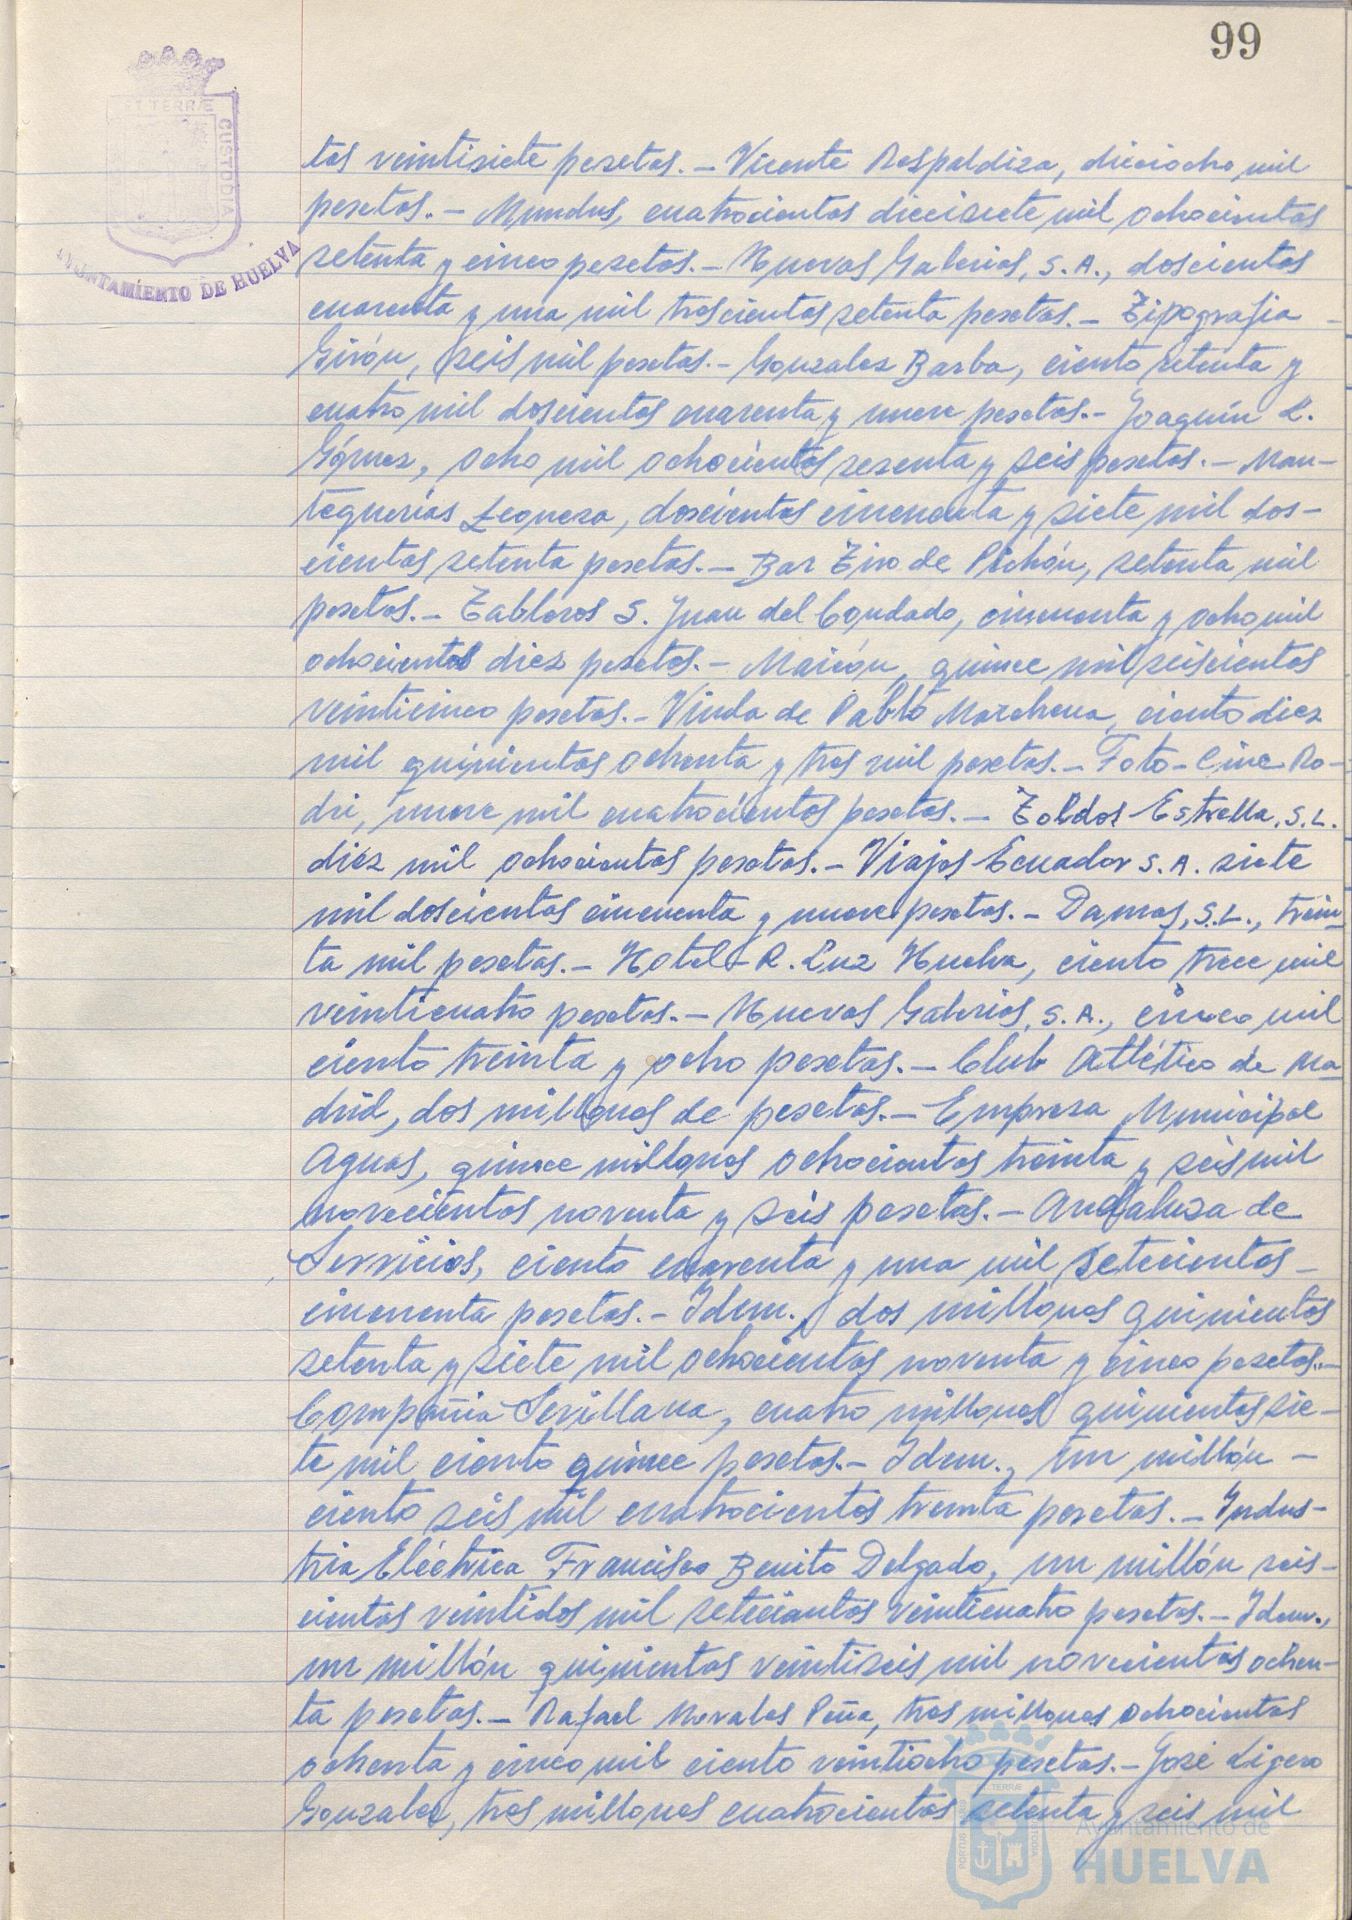 99
ET TERRÆ
CUSTODIA
AYUNTAMIENTO DE HUELVA
tas veintisiete pesetas.- Vicente Respaldiza, dieciocho mil
pesetas.- Mundus, cuatrocientas diecisiete mil ochocientas
setenta y cinco pesetas.- Nuevas Galerias, S.A., doscientas
cuarenta y una mil trescientas setenta pesetas.- Tipografia
Girón, seis mil pesetas.- Gonzalez Barba, ciento setenta y
cuatro mil doscientas cuarenta y nueve pesetas.- Joaquín L.
Gómez, ocho mil ochocientas sesenta y seis pesetas.- Man-
tequerías Zequeza, doscientas cincuenta y siete mil dos-
cientas setenta pesetas.- Bar Tiro de Pichón, setenta mil
pesetas.- Tableros S. Juan del Condado, cincuenta y ocho mil
ochocientas diez pesetas.- Maicón, quince mil seiscientas
veinticinco pesetas.- Viuda de Pablo Marchena, ciento diez
mil quinientas ochenta y tres mil pesetas.- Foto-Cine Ro-
dri, nueve mil cuatrocientas pesetas.- Toldos Estrella, S.L.
diez mil ochocientas pesetas.- Viajes Ecuador S.A. siete
mil doscientas cincuenta y nueve pesetas.- Damas, S.L., trein-
ta mil pesetas.- Hotel-R. Luz Huelva, ciento trece mil
veinticuatro pesetas.- Nuevas Galerias, S.A., cinco mil
ciento treinta y ocho pesetas.- Club Atlético de Ma-
drid, dos millones de pesetas.- Empresa Municipal
Aguas, quince millones ochocientas treinta y seis mil
novecientas noventa y seis pesetas.- Andaluza de
Servicios, ciento cuarenta y una mil setecientas -
cincuenta pesetas.- Idem., dos millones quinientas
setenta y siete mil ochocientas noventa y cinco pesetas.-
Compañia Sevillana, cuatro millones quinientas sie-
te mil ciento quince pesetas.- Idem., un millón -
ciento seis mil cuatrocientas treinta pesetas.- Indus-
tria Eléctrica Francisco Benito Delgado, un millón seis-
cientas veintidos mil setecientas veinticuatro pesetas.- Idem.,
un millón quinientas veintiseis mil novecientas ochen-
ta pesetas.- Rafael Morales Peña, tres millones ochocientas
ochenta y cinco mil ciento veintiocho pesetas.- José Ligero
Gonzalez, tres millones cuatrocientas setenta y seis mil
Ayuntamiento de
HUELVA